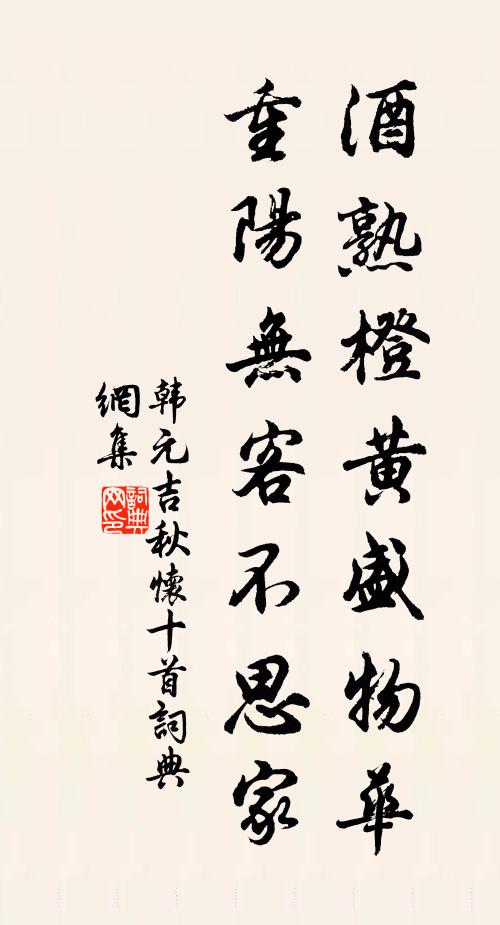 酒熟橙黃盛物華
重陽無客不思家
韩元吉秋懷十首詞典
網集
詞典
网印